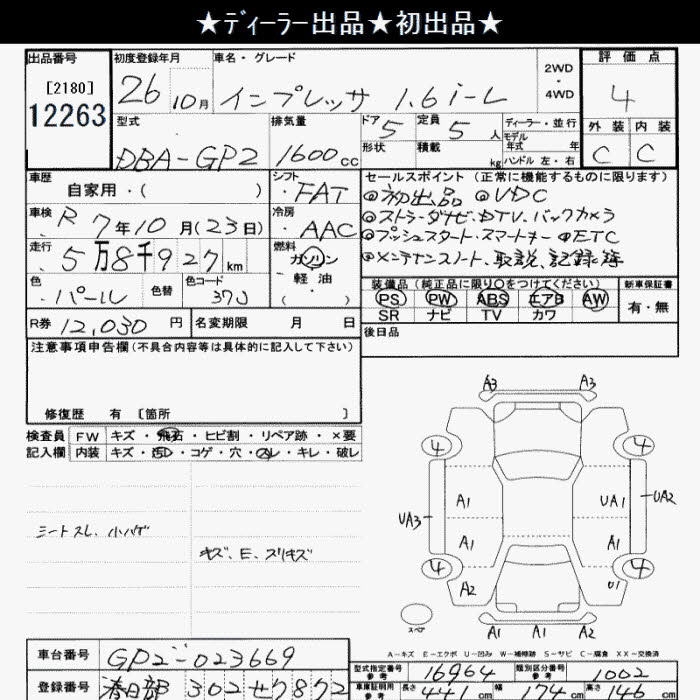 ★ディーラー出品★初出品★
出品番号
[2180]
12263
初度登録年月
26 10月
車名・グレード
インプレッサ 1.6i-L
2WD
・
4WD
評価点
4
外装 内装
C C
型式
DBA-GP2
排気量
1600cc
ドア 5
形状
定員 5人
積載 kg
ディーラー・並行
モデル年式 年
ハンドル 左・右
車歴
自家用・( )
シフト
・FAT
車検
R 7年10月(23日)
冷房
・AAC
走行
5万8千927km
燃料
ガソリン
・軽油
・( )
色
・パール
色替
色コード
37J
R券 12,030円
名変期限 月 日
セールスポイント(正常に機能するものに限ります)
◎初出品 ◎VDC
◎ストラーダナビ・DTV・バックカメラ
◎プッシュスタート・スマートキー ◎ETC
◎メンテナンスノート、取説、記録簿
装備品(純正品に限り○をつけてください)
PS PW ABS エアB AW
SR ナビ TV カワ
新車保証書
有・無
後日品
注意事項申告欄(不具合内容等は具体的に記入して下さい)
修復歴 有 〔箇所 〕
検査員記入欄
FW キズ・飛石・ヒビ割・リペア跡・×要
内装 キズ・汚れ・コゲ・穴・スレ・キレ・破レ
シートスレ、小ハゲ
キズ、E、スリキズ
A3 A3
4 4
A1 UA1 UA2
UA3 A1 A1
4 4
A2 U1
A1 A1 A2
スペア
A-キズ E-エクボ U-凹み W-補修跡 S-サビ C-腐食 XX-交換済
車台番号 GP2-023669
登録番号 春日部 302せ7872
型式指定番号 参考 16964
類別区分番号 参考 1002
車庫証明用 参考 長さ 441cm 幅 174cm 高さ 146cm